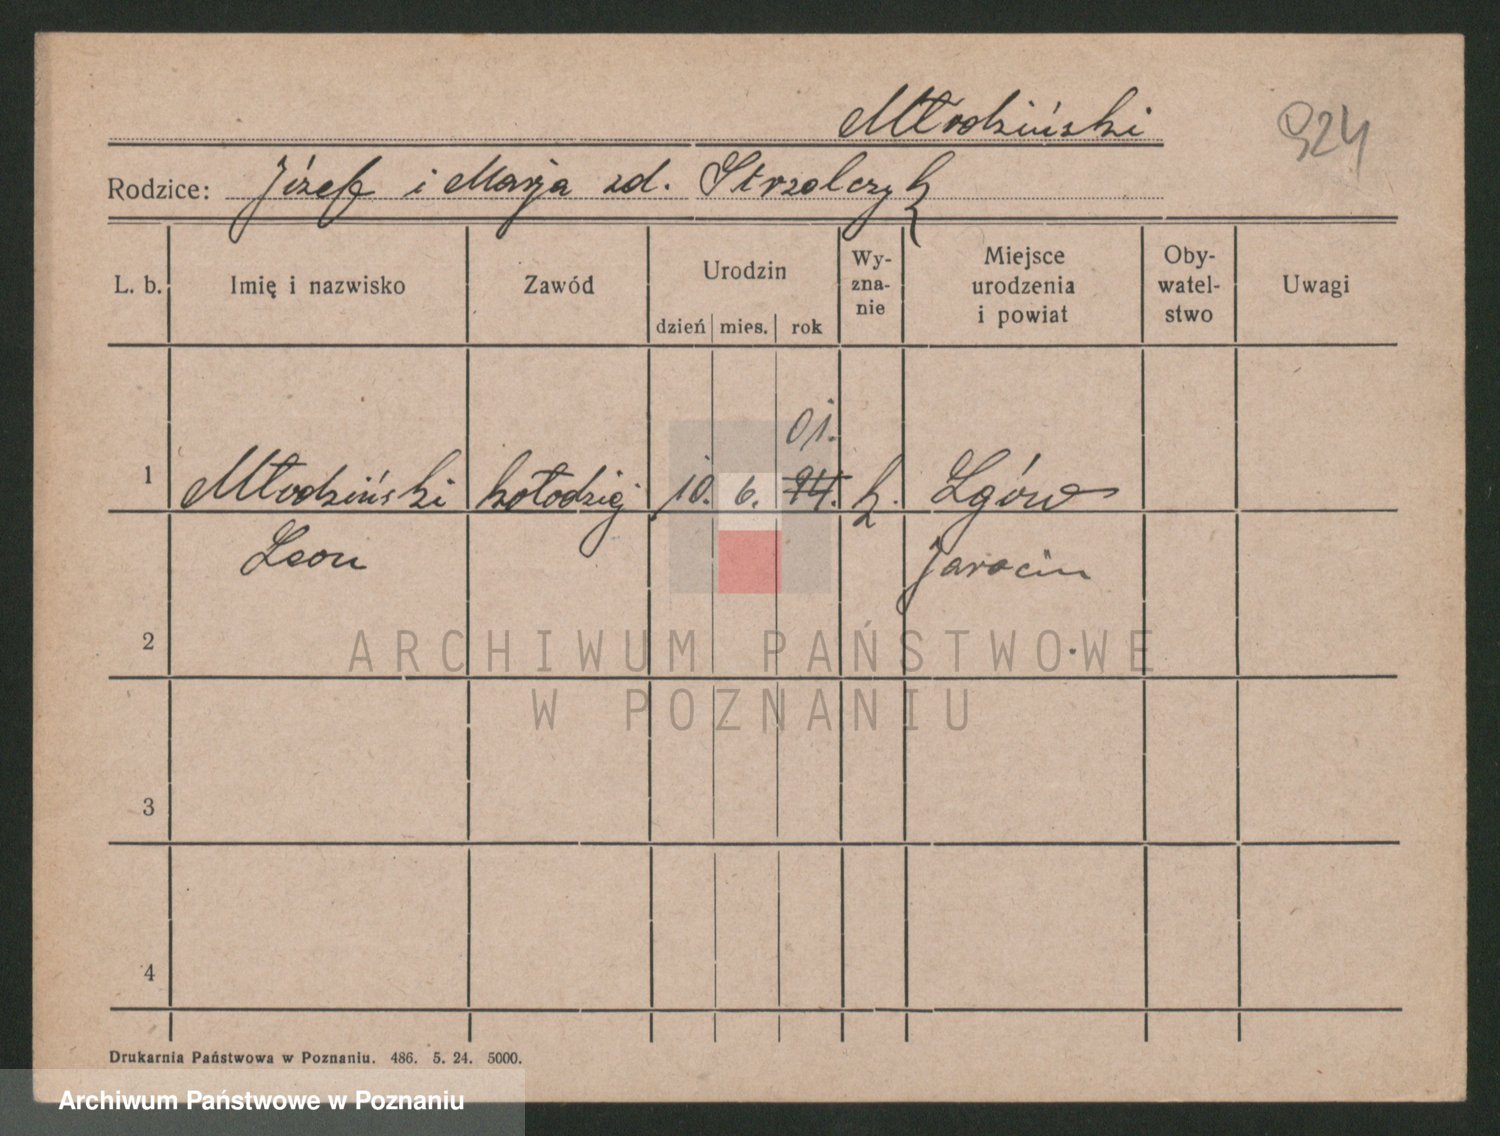 Młodziński
924
Rodzice: Józef i Marja zd. Strzelczyk
L. b. Imię i nazwisko Zawód Urodzin dzień mies. rok Wy-zna-nie Miejsce urodzenia i powiat Oby-watel-stwo Uwagi
01.
1 Młodziński kołodziej 10. 6. 94. k. Lgów
Leon Jarocin
2
ARCHIWUM PAŃSTWOWE
W POZNANIU
3
4
Drukarnia Państwowa w Poznaniu. 486. 5. 24. 5000.
Archiwum Państwowe w Poznaniu